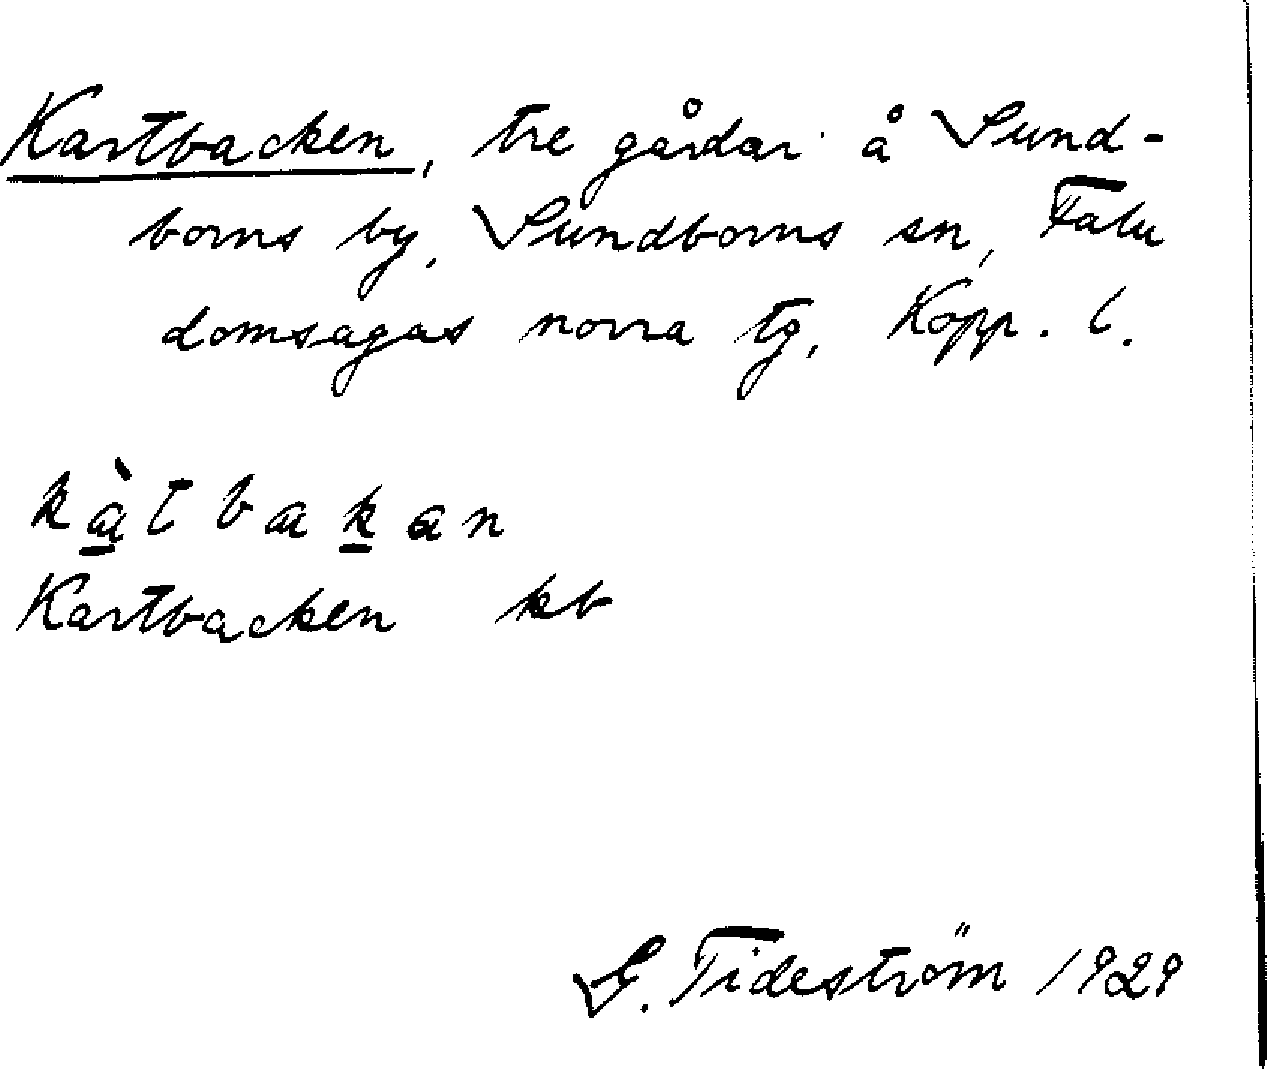 Kartbacken, tre gårdar å Sund-
borns by, Sundborns sn, Falu
domsagas norra tg, Kopp. l.
kàtbakan
Kartbacken kb
G. Tideström 1929